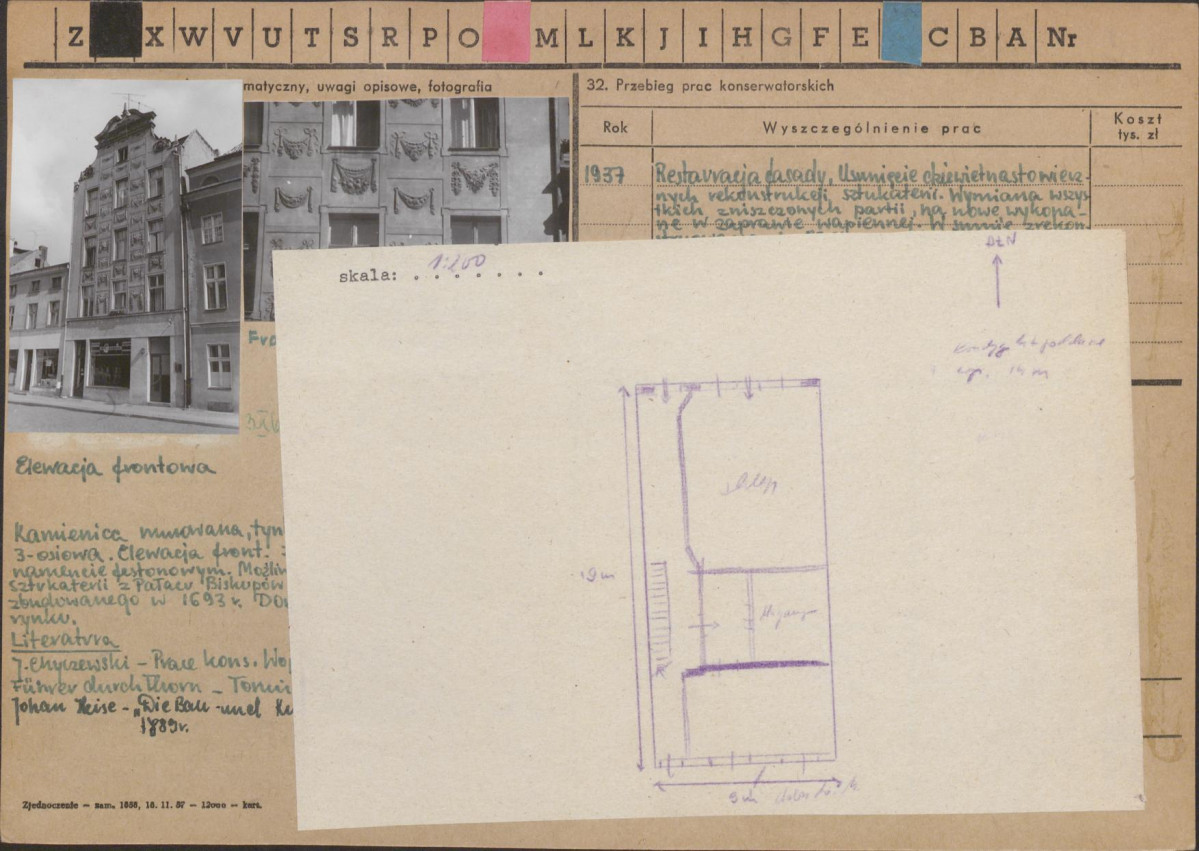 Z X W V U T S R P O M L K J I H G F E C B A Nr
matyczny, uwagi opisowe, fotografia
32. Przebieg prac konserwatorskich
Rok
Wyszczególnienie prac
Koszt
tys. zł
1937
Restauracja fasady. Usunięcie dziewiętnastowiecz-
nych rekonstrukcji sztukaterii. Wymiana wszys-
tkich zniszczonych partii, na nowe wykona-
ne w zaprawie wapiennej. W sumie zrekon
skala: 1:200
14 m
sklep
9 m
9 m
Fro
Elewacja frontowa
Kamienica murowana, tyn
3-osiowa. Elewacja front.
namencie festonowym. Możliw
sztukaterii z Pałacu Biskupów
zbudowanego w 1693 r. Do
rynku.
Literatura
J. Chyczewski - Prace kons. Woj
Führer durch Thorn - Toruń
Johan Heise - „Die Bau - und Ku
1889 r.
Zjednoczenie — zam. 1656, 16. 11. 57 — 12000 — kart.